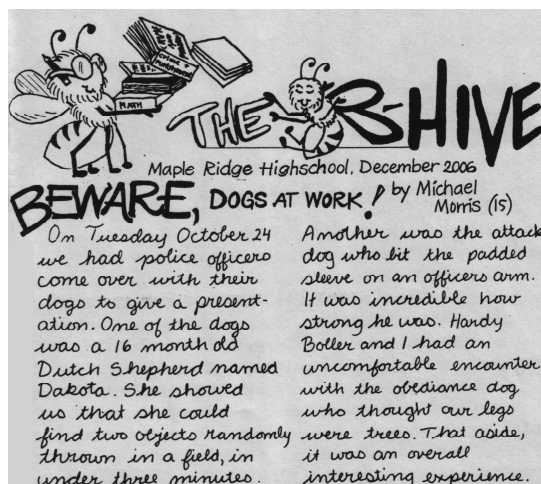 MATH
THE B-HIVE
Maple Ridge Highschool, December 2006
BEWARE, DOGS AT WORK!
by Michael
Morris (15)
On Tuesday October 24
we had police officers
come over with their
dogs to give a present-
ation. One of the dogs
was a 16 month old
Dutch Shepherd named
Dakota. She showed
us that she could
find two objects randomly
thrown in a field, in
under three minutes.
Another was the attack
dog who bit the padded
sleeve on an officers arm.
It was incredible how
strong he was. Hardy
Boller and I had an
uncomfortable encounter
with the obediance dog
who thought our legs
were trees. That aside,
it was an overall
interesting experience.